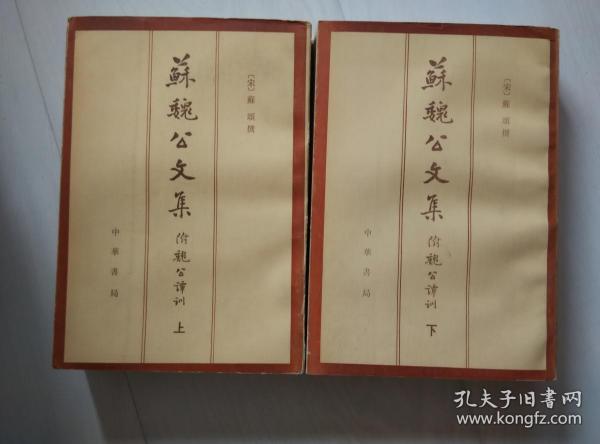 蘇魏公文集 附魏公譚訓 上
〔宋〕蘇頌撰
中華書局
蘇魏公文集 附魏公譚訓 下
〔宋〕蘇頌撰
中華書局
孔夫子旧书网
www.kongfz.com